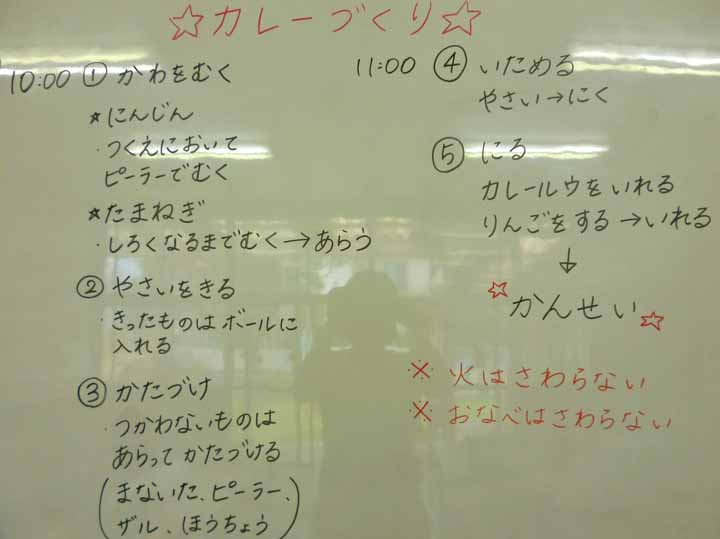 ☆カレーづくり☆
10:00 ① かわをむく
★にんじん
・つくえにおいて
ピーラーでむく
★たまねぎ
・しろくなるまでむく→あらう
② やさいをきる
・きったものはボールに
入れる
③ かたづけ
・つかわないものは
あらってかたづける
(まないた、ピーラー、
ザル、ほうちょう)
11:00 ④ いためる
やさい→にく
⑤ にる
カレールウをいれる
りんごをする→いれる
↓
☆かんせい☆
※ 火はさわらない
※ おなべはさわらない